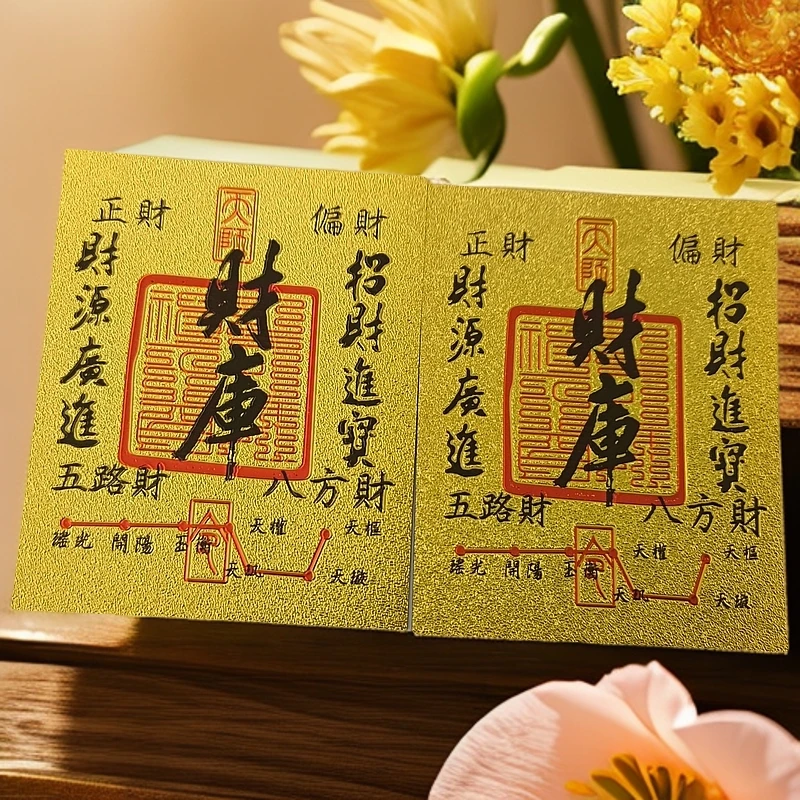 正財
天師
偏財
財源廣進
財庫
招財進寶
五路財
八方財
瑤光
開陽
玉衡
令
天權
天樞
天璇
正財
天師
偏財
財源廣進
財庫
招財進寶
五路財
八方財
瑤光
開陽
玉衡
令
天權
天樞
天璇